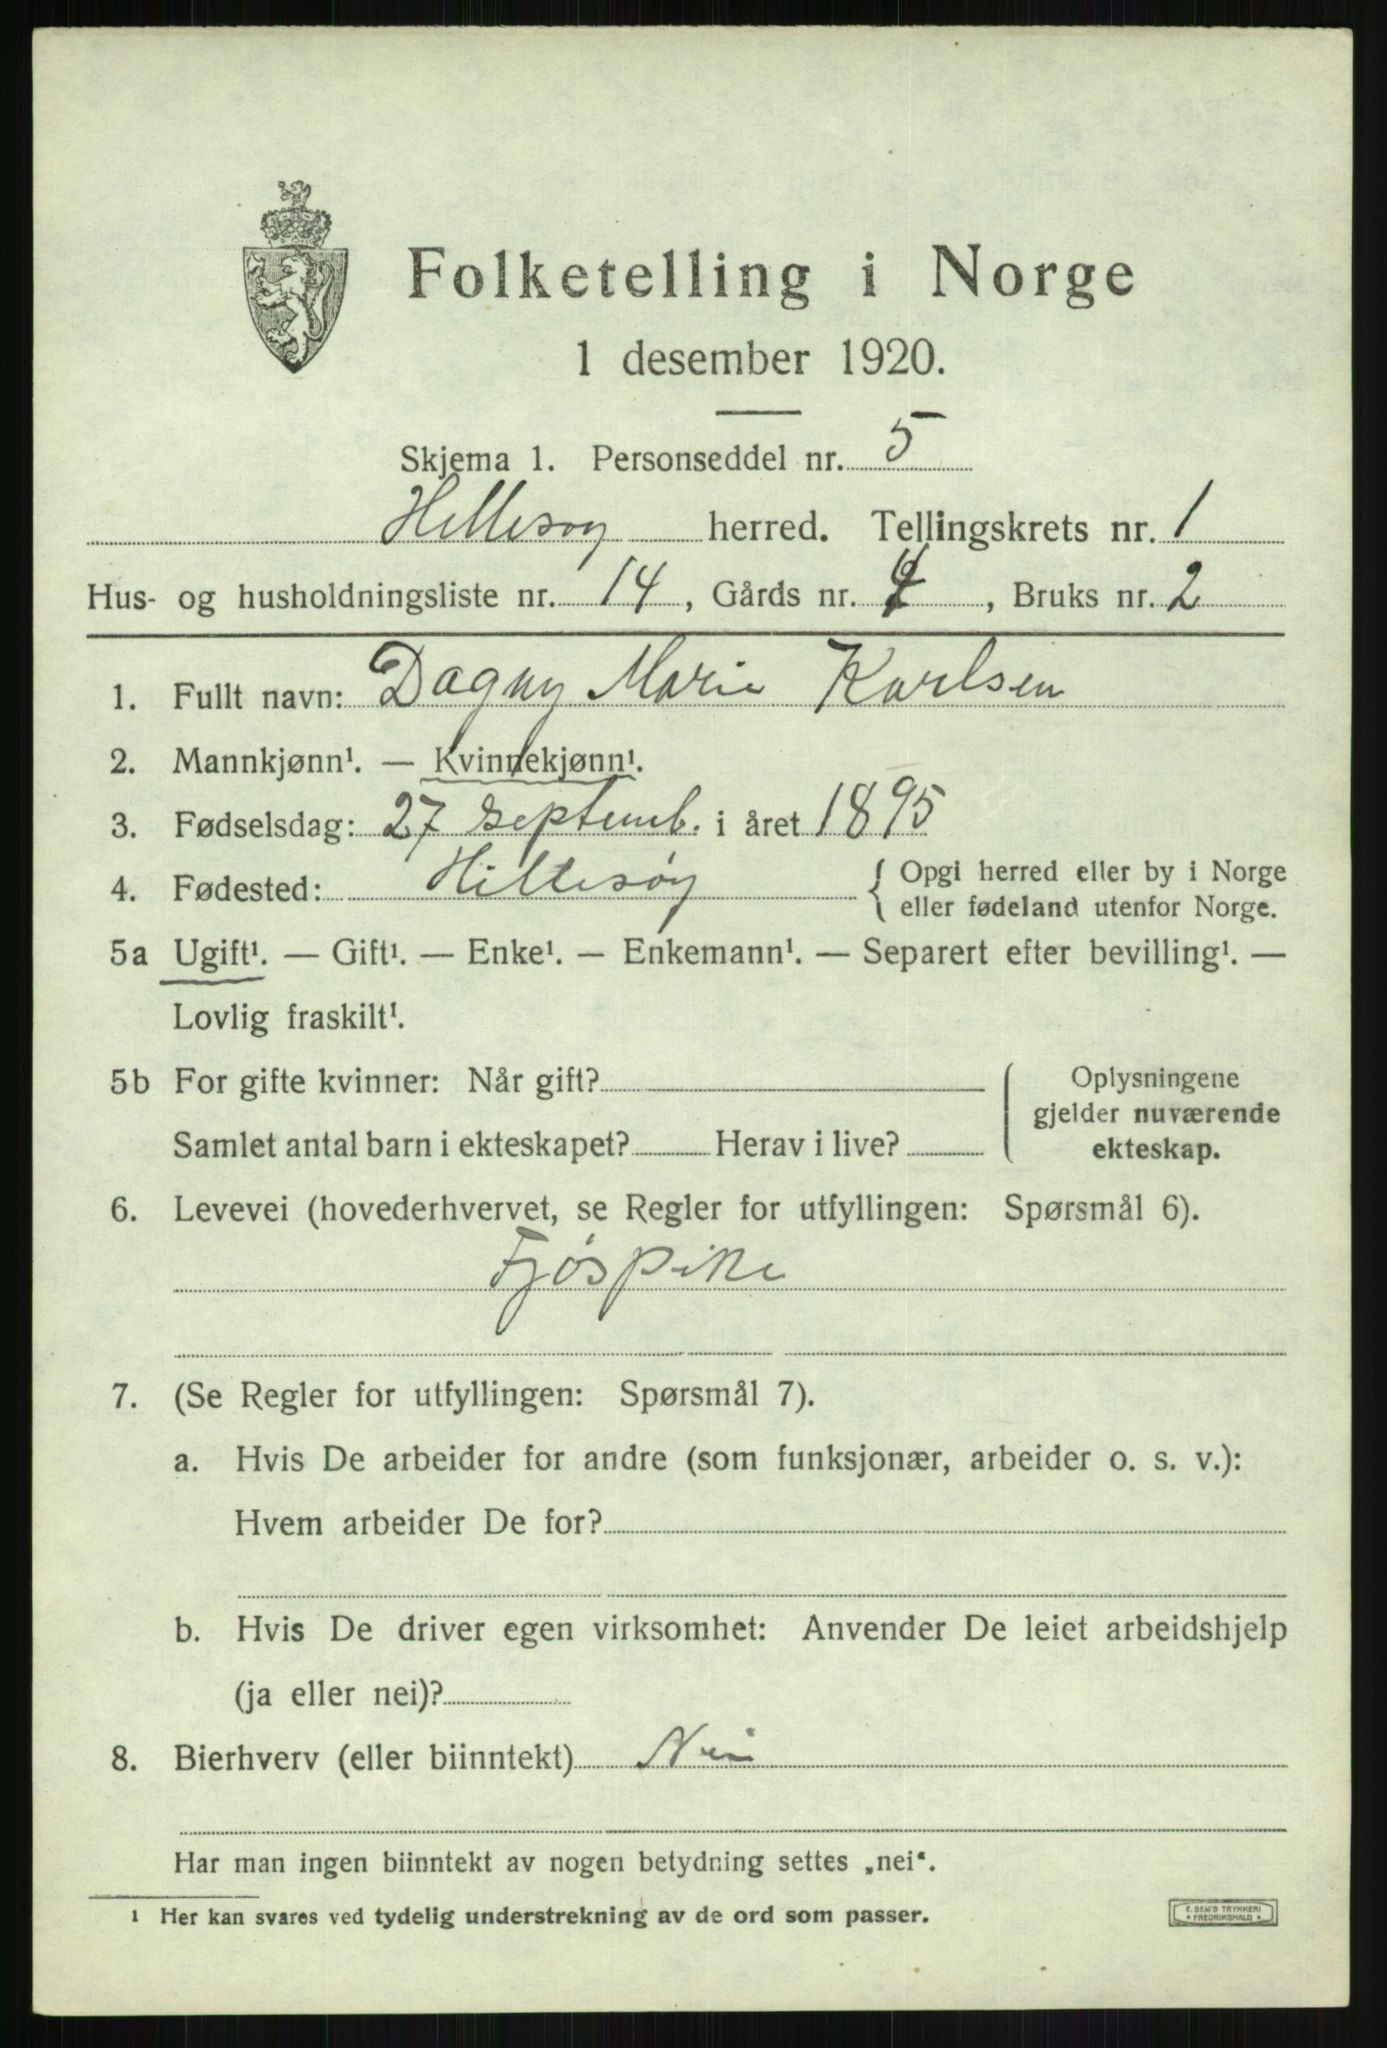 Folketelling i Norge
1 desember 1920.
Skjema 1. Personseddel nr. 5
Hillesøy herred. Tellingskrets nr. 1
Hus- og husholdningsliste nr. 14, Gårds nr. , Bruks nr. 2
1. Fullt navn: Dagny Marie Karlsen
2. Mannkjønn¹. — Kvinnekjønn¹.
3. Fødselsdag: 27 septemb. i året 1895
4. Fødested: Hillesøy { Opgi herred eller by i Norge
eller fødeland utenfor Norge.
5a Ugift¹. — Gift¹. — Enke¹. — Enkemann¹. — Separert efter bevilling¹. —
Lovlig fraskilt¹.
5b For gifte kvinner: Når gift? Oplysningene
gjelder nuværende
Samlet antal barn i ekteskapet? Herav i live? ekteskap.
6. Levevei (hovederhvervet, se Regler for utfyllingen: Spørsmål 6).
Fjøspike
7. (Se Regler for utfyllingen: Spørsmål 7).
a. Hvis De arbeider for andre (som funksjonær, arbeider o. s. v.):
Hvem arbeider De for?
b. Hvis De driver egen virksomhet: Anvender De leiet arbeidshjelp
(ja eller nei)?
8. Bierhverv (eller biinntekt) Nei
Har man ingen biinntekt av nogen betydning settes „nei“.
¹ Her kan svares ved tydelig understrekning av de ord som passer.
E. SEM'S TRYKKERI
• FREDRIKSHALD •